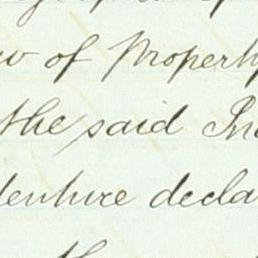 w of Property
the said In
denture decla